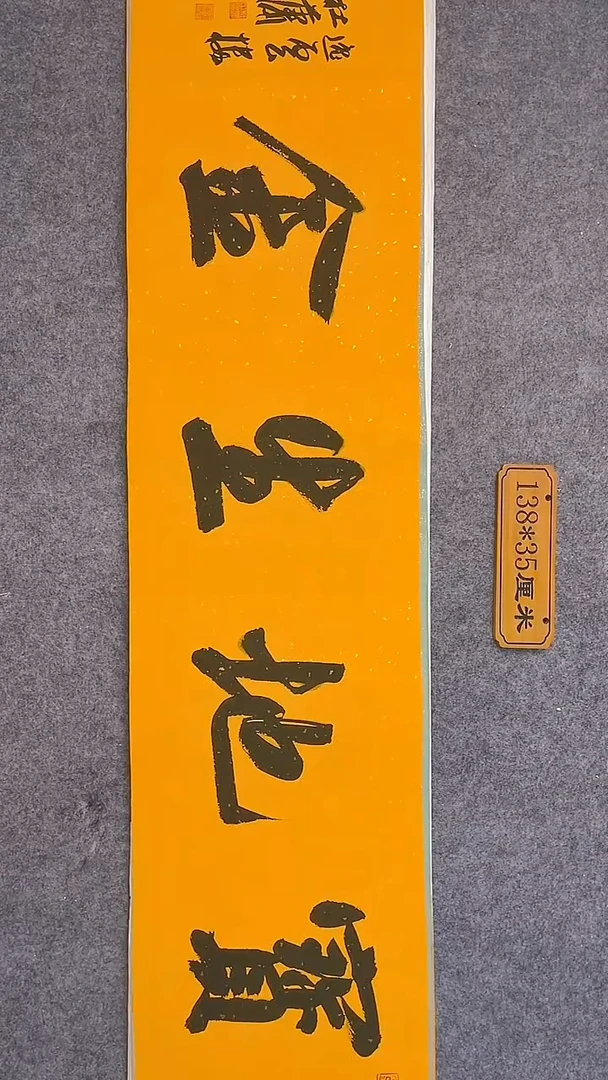 寶地生金
138*35厘米